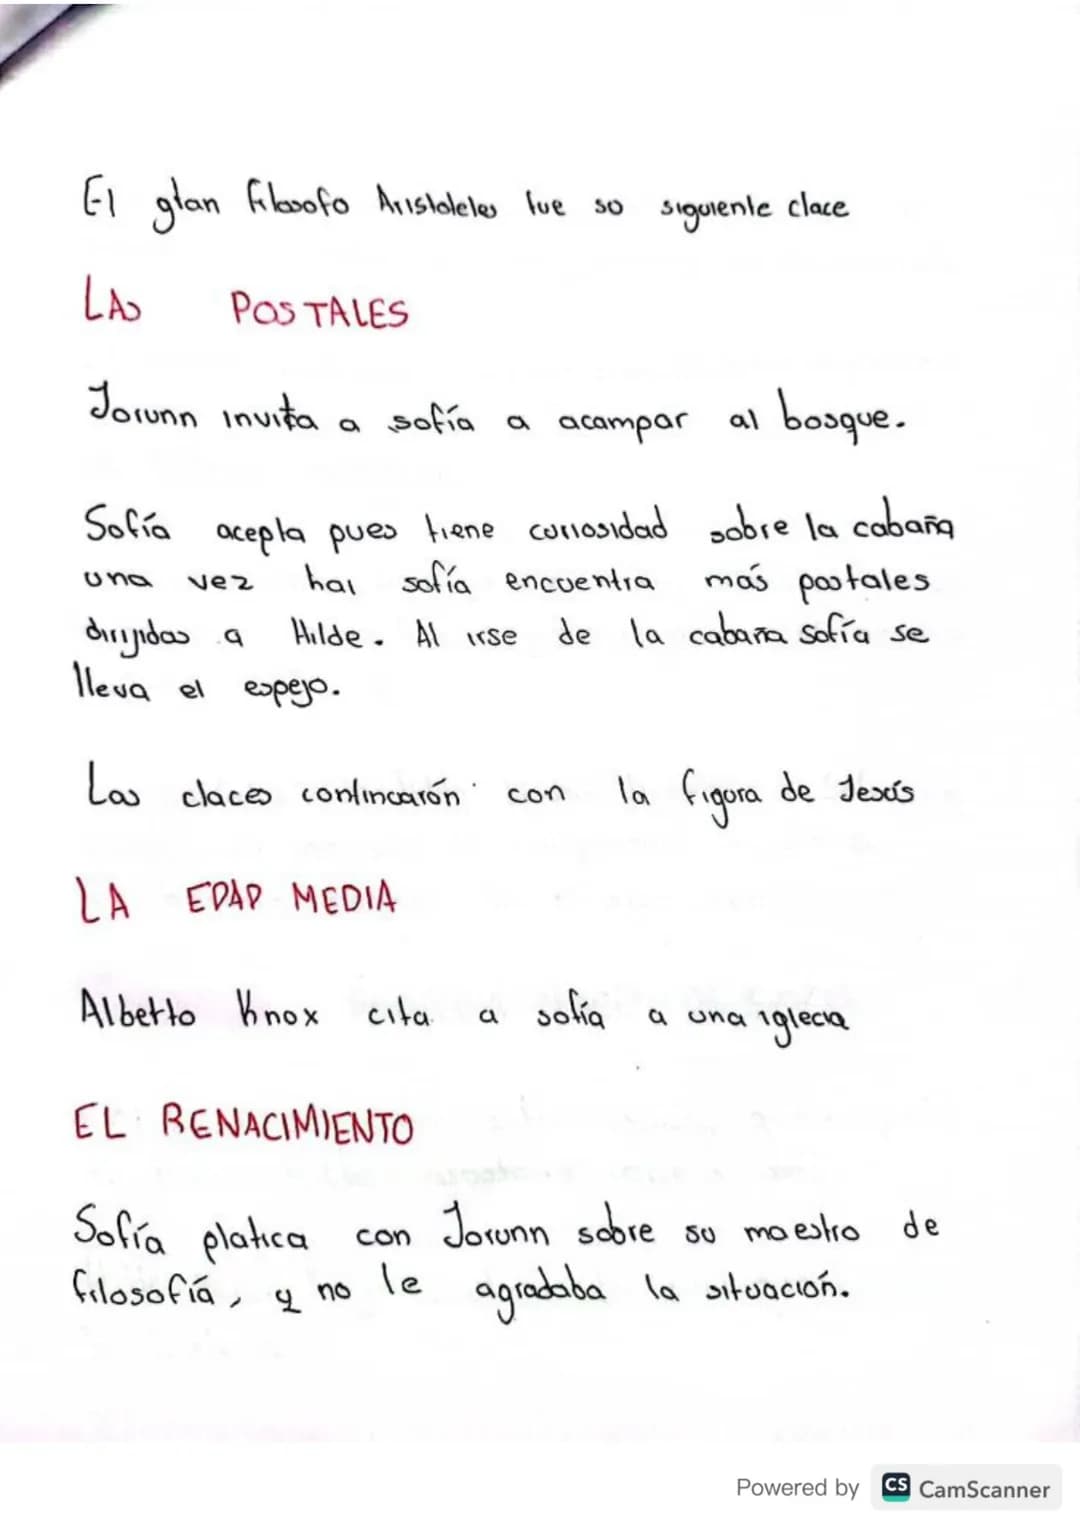 El gran filosofo Aristoteles fue su siguiente clace
LAS POSTALES
Jorunn invita a sofía a acampar al bosque.
Sofía acepta pues tiene curiosidad sobre la cabaña
una vez hai sofía encuentra más postales
dirijidas a Hilde. Al irse de la cabaña sofía se
lleva el espejo.
Las claces continuarón con la figura de Jesús
LA EDAD MEDIA
Alberto Knox cita a sofía a una iglecia
EL RENACIMIENTO
Sofía platica con Jorunn sobre su maestro de
filosofía, y no le agradaba la situación.
Powered by CS CamScanner